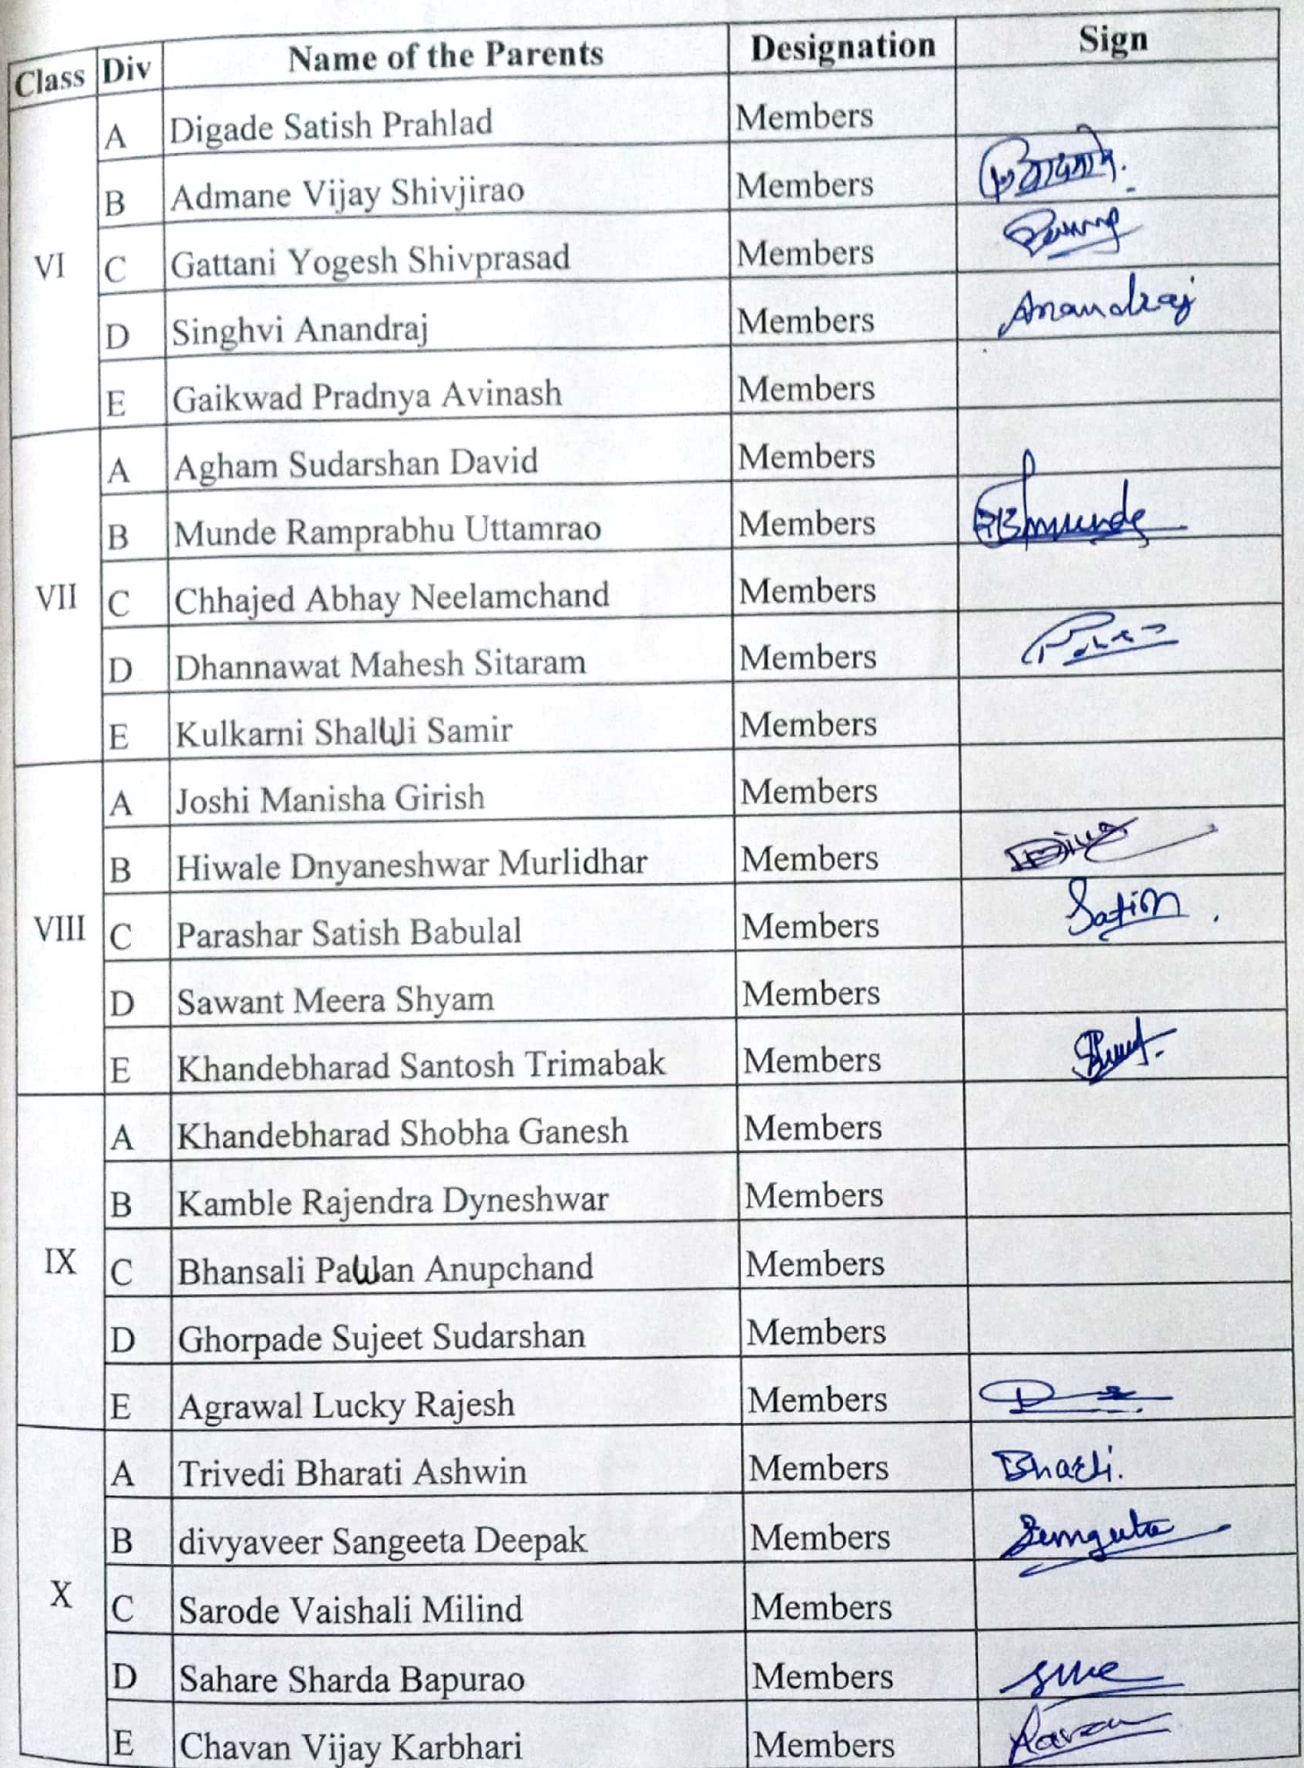 Class Div Name of the Parents Designation Sign
VI
A Digade Satish Prahlad Members
B Admane Vijay Shivjirao Members
C Gattani Yogesh Shivprasad Members
D Singhvi Anandraj Members Anandraj
E Gaikwad Pradnya Avinash Members
VII
A Agham Sudarshan David Members
B Munde Ramprabhu Uttamrao Members
C Chhajed Abhay Neelamchand Members
D Dhannawat Mahesh Sitaram Members
E Kulkarni Shalwli Samir Members
VIII
A Joshi Manisha Girish Members
B Hiwale Dnyaneshwar Murlidhar Members
C Parashar Satish Babulal Members Satish
D Sawant Meera Shyam Members
E Khandebharad Santosh Trimabak Members
IX
A Khandebharad Shobha Ganesh Members
B Kamble Rajendra Dyneshwar Members
C Bhansali Pawan Anupchand Members
D Ghorpade Sujeet Sudarshan Members
E Agrawal Lucky Rajesh Members
X
A Trivedi Bharati Ashwin Members
B divyaveer Sangeeta Deepak Members
C Sarode Vaishali Milind Members
D Sahare Sharda Bapurao Members
E Chavan Vijay Karbhari Members